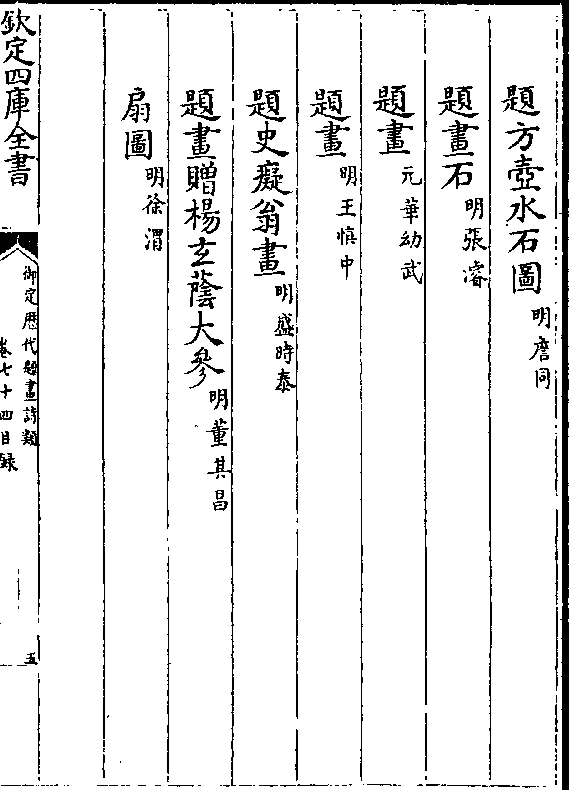 題方壺水石圖 明詹同
題畫石 明張濬
題畫 元華幼武
題畫 明王慎中
題史癡翁畫 明盛時泰
題畫贈楊玄蔭大參 明董其昌
扇圖 明徐渭
欽定四庫全書
御定歷代題畫詩類
卷七十四目録
五